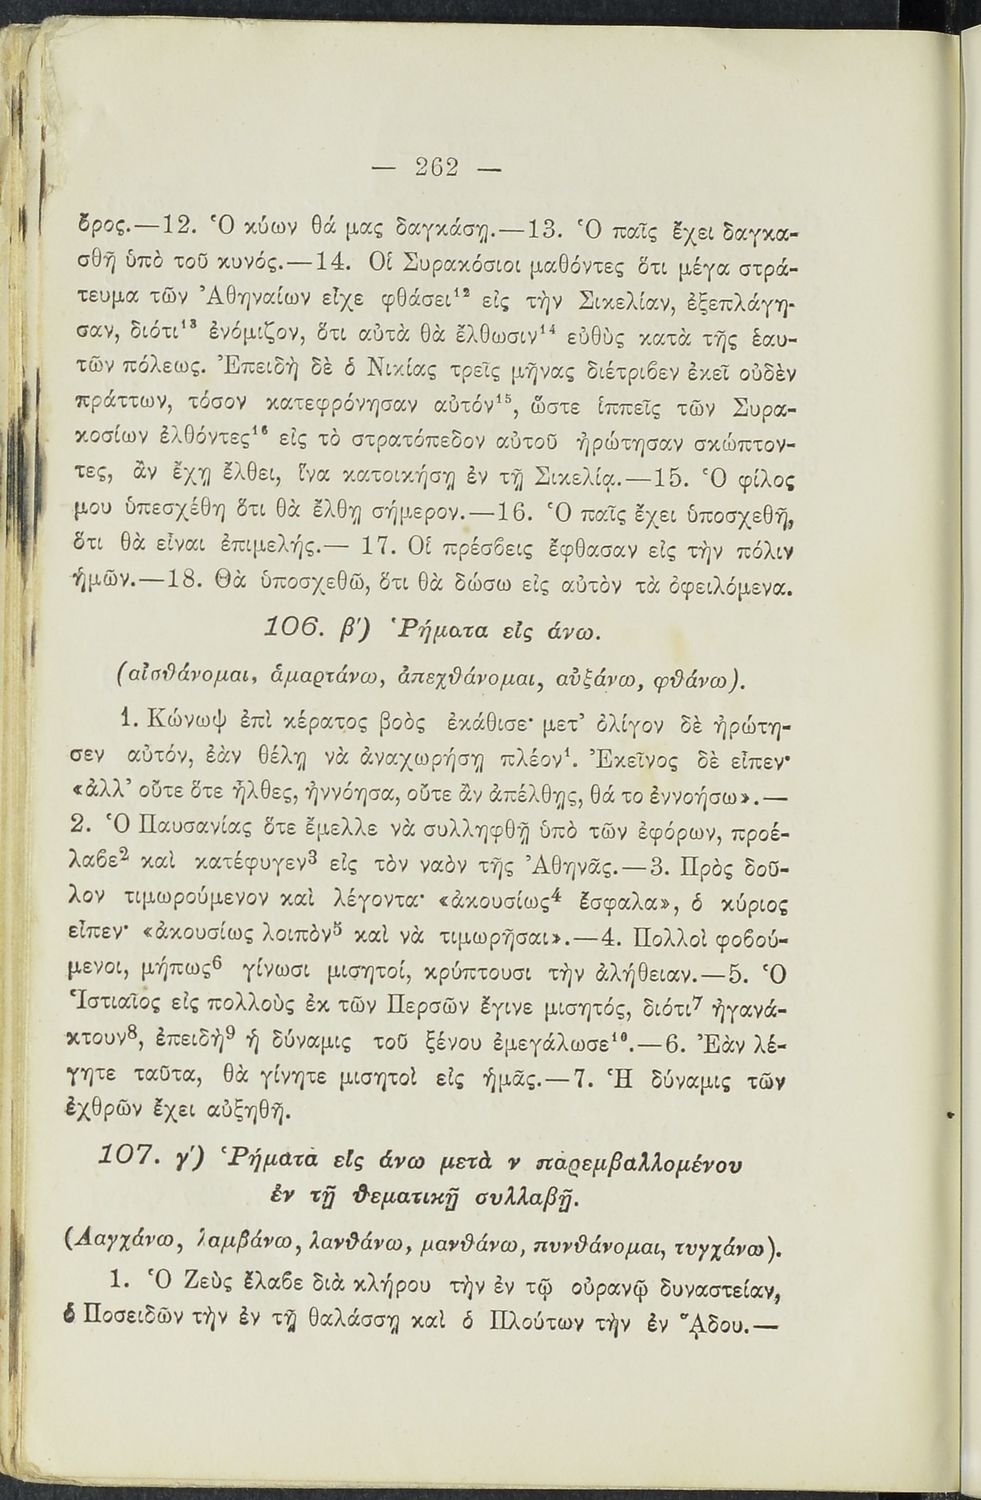 — 262 —
δρος.—12. Ὁ κύων θά μας δαγκάσῃ.—13. Ὁ παῖς ἔχει δαγκα-
σθῆ ὑπὸ τοῦ κυνός.—14. Οἱ Συρακόσιοι μαθόντες ὅτι μέγα στρά-
τευμα τῶν Ἀθηναίων εἶχε φθάσει¹² εἰς τὴν Σικελίαν, ἐξεπλάγη-
σαν, διότι¹³ ἐνόμιζον, ὅτι αὐτὰ θὰ ἔλθωσιν¹⁴ εὐθὺς κατὰ τῆς ἑαυ-
τῶν πόλεως. Ἐπειδὴ δὲ ὁ Νικίας τρεῖς μῆνας διέτριβεν ἐκεῖ οὐδὲν
πράττων, τόσον κατεφρόνησαν αὐτόν¹⁵, ὥστε ἱππεῖς τῶν Συρα-
κοσίων ἐλθόντες¹⁶ εἰς τὸ στρατόπεδον αὐτοῦ ἠρώτησαν σκώπτον-
τες, ἂν ἔχῃ ἔλθει, ἵνα κατοικήσῃ ἐν τῇ Σικελίᾳ.—15. Ὁ φίλος
μου ὑπεσχέθη ὅτι θὰ ἔλθῃ σήμερον.—16. Ὁ παῖς ἔχει ὑποσχεθῆ,
ὅτι θὰ εἶναι ἐπιμελής.— 17. Οἱ πρέσβεις ἔφθασαν εἰς τὴν πόλιν
ἡμῶν.—18. Θὰ ὑποσχεθῶ, ὅτι θὰ δώσω εἰς αὐτὸν τὰ ὀφειλόμενα.
106. β') Ῥήματα εἰς άνω.
(αἰσθάνομαι, ἁμαρτάνω, ἀπεχθάνομαι, αὐξάνω, φθάνω).
1. Κώνωψ ἐπὶ κέρατος βοὸς ἐκάθισε· μετ' ὀλίγον δὲ ἠρώτη-
σεν αὐτόν, ἐὰν θέλῃ νὰ ἀναχωρήσῃ πλέον¹. Ἐκεῖνος δὲ εἶπεν·
«ἀλλ' οὔτε ὅτε ἦλθες, ἠννόησα, οὔτε ἂν ἀπέλθῃς, θά το ἐννοήσω».—
2. Ὁ Παυσανίας ὅτε ἔμελλε νὰ συλληφθῇ ὑπὸ τῶν ἐφόρων, προέ-
λαβε² καὶ κατέφυγεν³ εἰς τὸν ναὸν τῆς Ἀθηνᾶς.—3. Πρὸς δοῦ-
λον τιμωρούμενον καὶ λέγοντα· «ἀκουσίως⁴ ἔσφαλα», ὁ κύριος
εἶπεν· «ἀκουσίως λοιπὸν⁵ καὶ νὰ τιμωρῆσαι».—4. Πολλοὶ φοβού-
μενοι, μήπως⁶ γίνωσι μισητοί, κρύπτουσι τὴν ἀλήθειαν.—5. Ὁ
Ἱστιαῖος εἰς πολλοὺς ἐκ τῶν Περσῶν ἔγινε μισητός, διότι⁷ ἠγανά-
κτουν⁸, ἐπειδὴ⁹ ἡ δύναμις τοῦ ξένου ἐμεγάλωσε¹⁰.—6. Ἐὰν λέ-
γητε ταῦτα, θὰ γίνητε μισητοὶ εἰς ἡμᾶς.—7. Ἡ δύναμις τῶν
ἐχθρῶν ἔχει αὐξηθῆ.
107. γ') Ῥήματα εἰς άνω μετὰ ν παρεμβαλλομένου
ἐν τῇ θεματικῇ συλλαβῇ.
(Λαγχάνω, λαμβάνω, λανθάνω, μανθάνω, πυνθάνομαι, τυγχάνω).
1. Ὁ Ζεὺς ἔλαβε διὰ κλήρου τὴν ἐν τῷ οὐρανῷ δυναστείαν,
ὁ Ποσειδῶν τὴν ἐν τῇ θαλάσσῃ καὶ ὁ Πλούτων τὴν ἐν ᾍδου.—